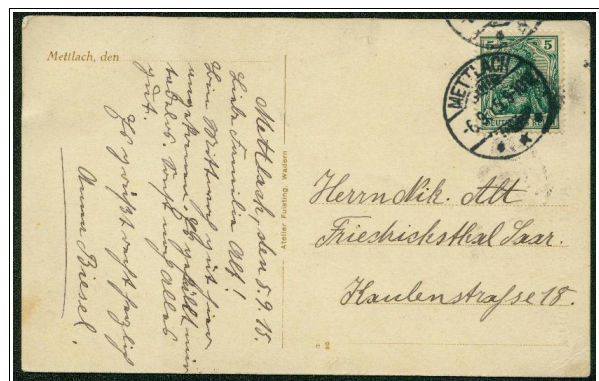 Mettlach, den
Mettlach, den 5.9.15.
Liebe Familie Alt!
Bin Mittwoch gut hier
angekommen. Es gefällt mir
tadellos. Sonst noch alles
gut.
Es grüßt recht herzlich
Anna Biesel.
Atelier Fuisting, Wadern
METTLACH
5
DEUTSCHES REICH
Herrn Nik. Alt
Friedrichsthal Saar.
Kaulenstraße 18.